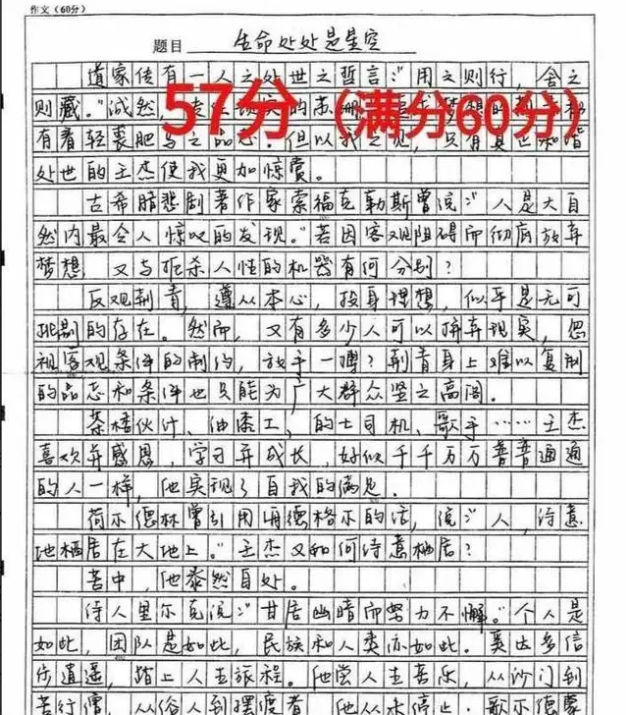 作文（60分）
题目 生命处处是星空
57分（满分60分）
道家传有一人之处世之哲言：“用之则行，舍之
则藏。”诚然，
有着轻裘肥马之品志。但以我之见，
处世的王杰使我更加惊赏。
古希腊悲剧著作家索福克勒斯曾说：“人是大自
然内最令人惊叹的发现。”若因客观阻碍而彻底放弃
梦想，又与扼杀人性的机器有何分别？
反观荆青，遵从本心，投身理想，似乎是无可
批剔的存在。然而，又有多少人可以摒弃现实，忽
视客观条件的制约，放手一搏？荆青身上难以复制
的品志和条件也只能为广大群众竖之高阁。
茶楼伙计、油漆工、的士司机、歌手……王杰
喜欢并感恩，学习并成长，好似千千万万普普通通
的人一样，他实现了自我的满足。
荷尔德林曾引用海德格尔的话，说：“人，诗意
地栖居在大地上。”王杰又如何诗意栖居？
苦中，他泰然自处。
诗人里尔克说：“甘居幽暗而努力不懈。”个人是
如此，团队是如此，民族和人类亦如此。悉达多信
步逍遥，踏上人生旅程。他尝人生喜乐，从沙门到
苦行僧，从俗人到摆渡者，他从未停止。歌尔德蒙